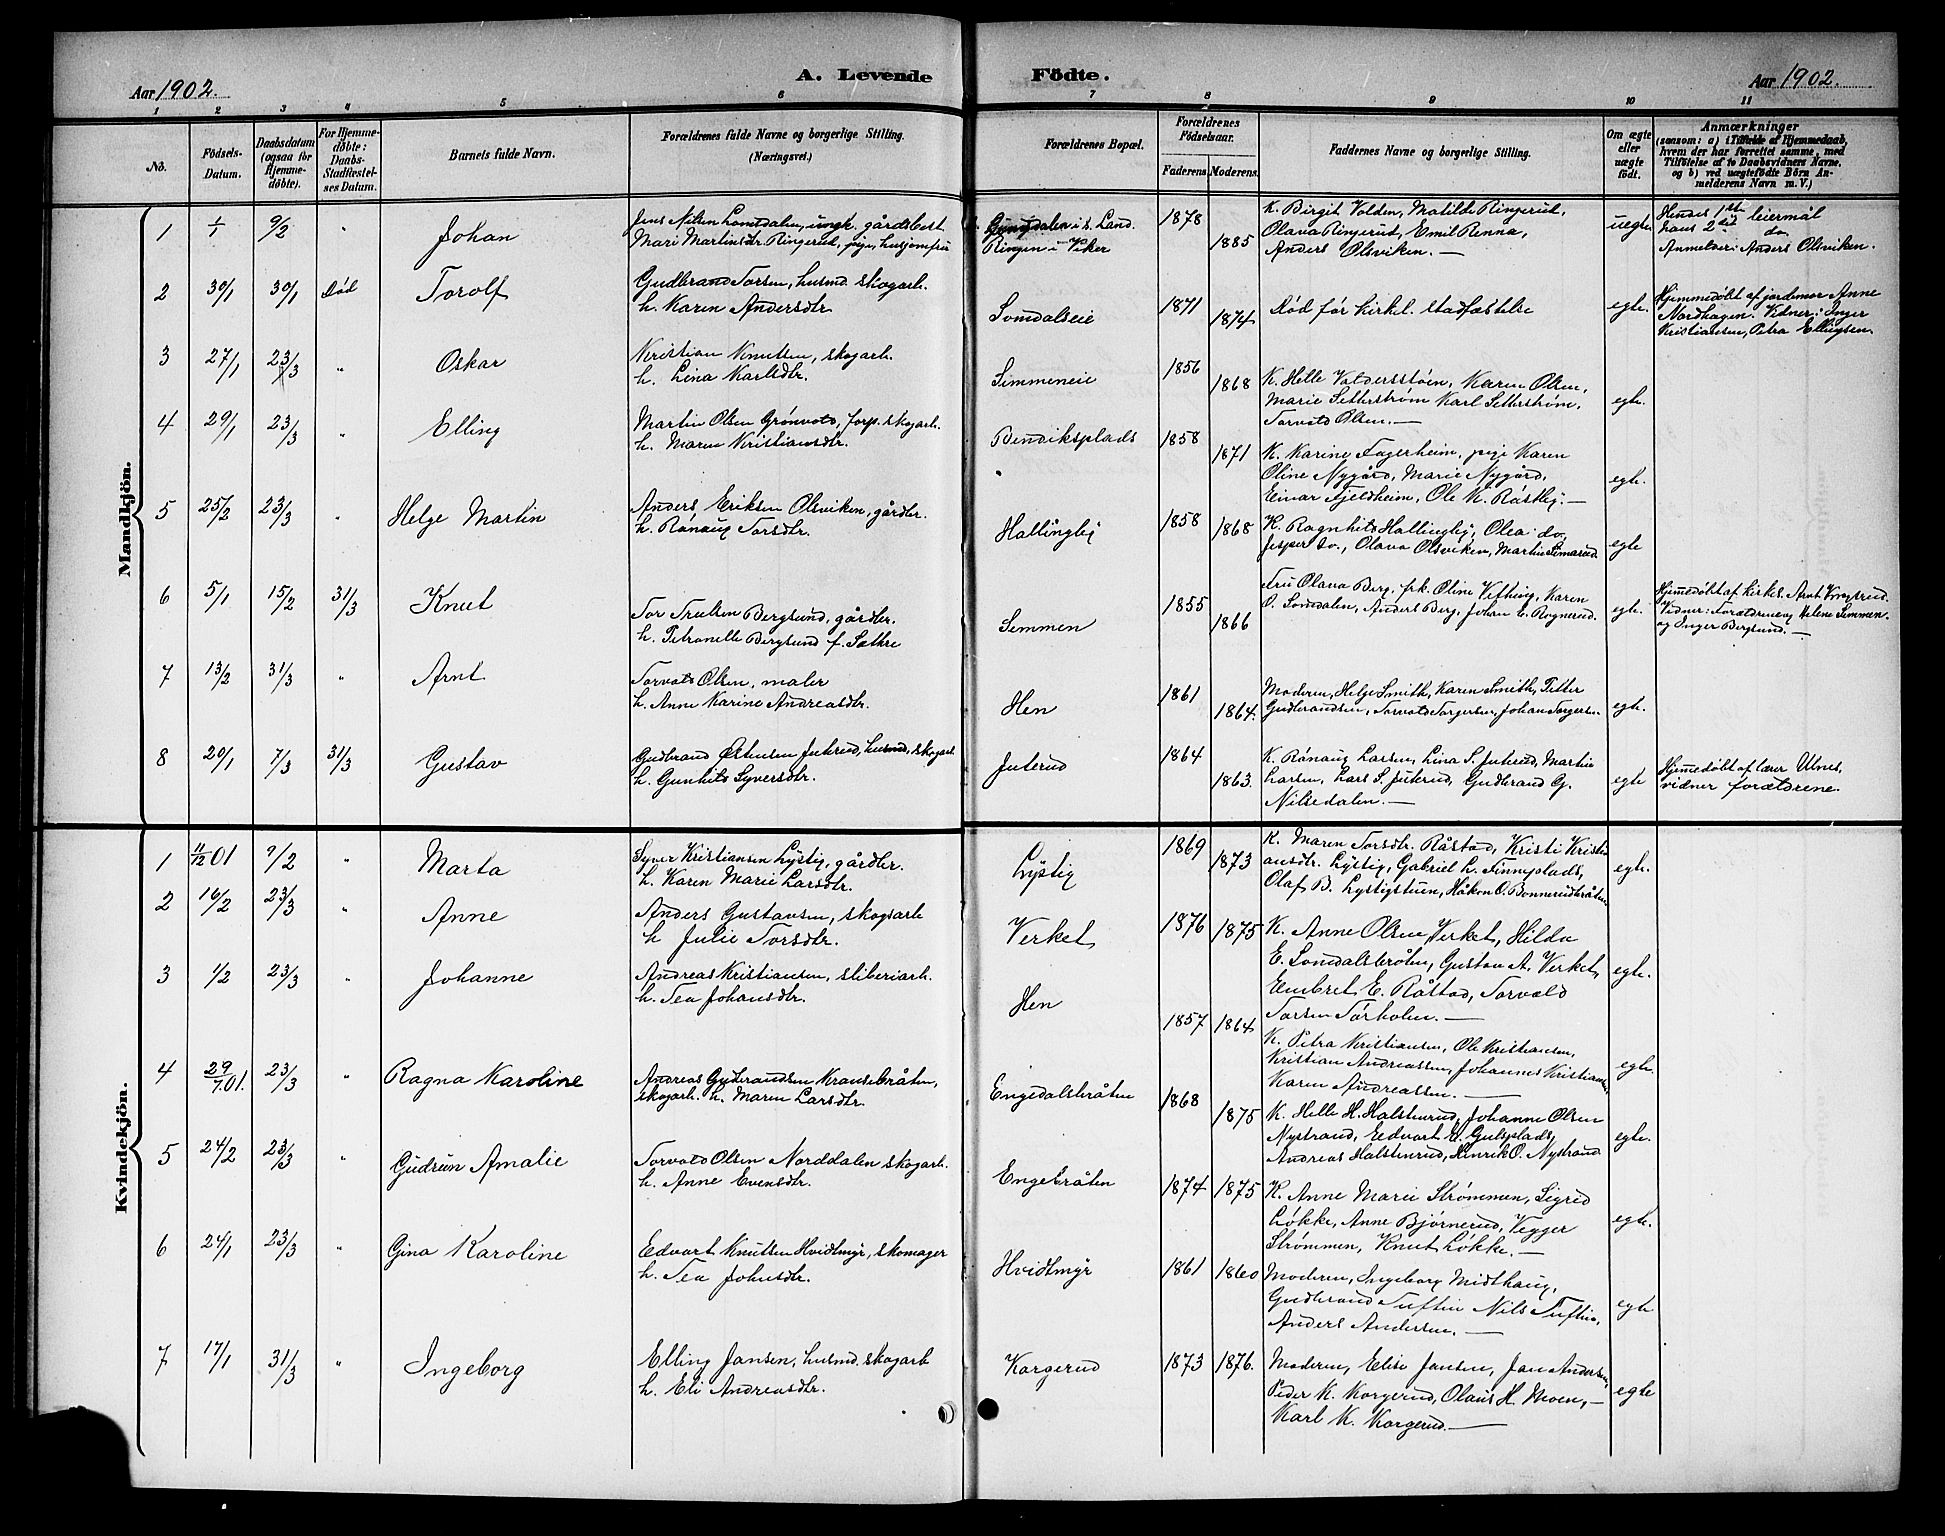 Aar 1902.
A. Levende Födte.
Aar 1902.
1 2 3 4 5 6 7 8 9 10 11
No.
Födsels-Datum.
Daabsdatum (ogsaa for Hjemmedöbte).
For Hjemmedöbte: Daabs-Stadfæstelses Datum.
Barnets fulde Navn.
Forældrenes fulde Navne og borgerlige Stilling. (Næringsvei.)
Forældrenes Bopæl.
Forældrenes Födselsaar.
Faderens. Moderens.
Faddernes Navne og borgerlige Stilling.
Om ægte eller uægte födt.
Anmærkninger
(saasom: a) i Tilfælde af Hjemmedaab, hvem der har forrettet samme, med Tilföielse af to Daabsvidners Navne, og b) ved uægtefödte Börn Anmelderens Navn m. V.)
Mandkjön.
1 1/1 9/2 " Johan
Jens Nilsen Lomsdalen, ungk. gårdsbest
Mari Martinsdr. Ringerud, pige, husjomfru
i s. Land.
Ringen i Viker
1878 1885
K. Birgit Volden, Matilde Ringerud,
Olava Ringerud, Emil Renna,
Anders Olsviken. —
uegte
Hendes 1ste leiermål
hans 2det do.
Anmelder: Anders Olsviken.
2 30/1 30/1 Død Torolf
Gudbrand Torsen, husmd. skogarb.
h. Karen Andersdtr.
Somdalseie
1871 1874
Død før kirkel. stadfæstelse
egte.
Hjemmedøbt af jordemor Anne
Nordhagen. Vidner: Inger
Kristiansen, Petra Ellingsen.
3 27/1 23/3 " Oskar
Kristian Knutsen, skogarb.
h. Lina Karlsdtr.
Simmeneie
1856 1868
K. Helle Valdersstøen, Karen Olsen,
Marie Setterstrøm Karl Setterstrøm,
Torvald Olsen. —
egte.
4 29/1 23/3 " Elling
Martin Olsen Grønvold, forp. skogarb.
h. Maren Kristiansdtr.
Bendiksplads
1858 1871
K. Karine Fagerheim, pige Karen
Oline Nygård, Marie Nygård,
Einar Fjeldheim, Ole K. Råstby. —
egte.
5 25/2 23/3 " Helge Martin
Anders Eriksen Olsviken, gårdbr.
h. Rønaug Torsdtr.
Hallingby
1858 1868
K. Ragnhild Hallingby, Olea do,
Jesper do., Olava Olsviken, Martin Simarud.
egte
6 5/1 15/2 31/3 Knut
Tor Trulsen Berglund, gårdbr.
h. Petronelle Berglund f. Sætre
Semmen
1855 1866
Fru Olava Berg, frk. Oline Vefling, Karen
O. Somdalen, Anders Berg, Johan E. Rognerud.
egte.
Hjemmedøbt af kirkes. Arnt
Vidner: Forældrene og Helene Semmen
og Inger Berglund. —
7 13/2 31/3 " Arnt
Torvald Olsen, maler
h. Anne Karine Andreasdtr.
Hen
1861 1864.
Moderen, Helge Smith, Karen Smith, Petter
Gudbrandsen, Torvald Torgersen, Johan Torgersen.
egte.
8 20/1 7/3 31/3 Gustav
Gudbrand Østensen Juterud, husmd, skogarb.
h. Gunhild Syversdtr.
Juterud
1864 1863.
K. Rønaug Larsen, Lina S. Juterud, Martin
Larsen, Lars S. Juterud, Gudbrand G.
Nilsedalen. —
egte
Hjemmedøbt af lærer Ulnes,
vidner forældrene.
Kvindekjön.
1 11/12 01 9/2 " Marta
Syver Kristiansen Lystig, gårdbr.
h. Karen Marie Larsdtr.
Lystig
1869 1873
K. Maren Torsdtr. Råstad, Kristi Kristi
ansdtr. Lystig, Gabriel L. Finneplads,
Olaf B. Lystigstuen, Håkon O. Bonnerudbråten
egte.
2 16/2 23/3 " Anne
Anders Gustavsen, skogsarb
h Julie Torsdtr.
Verket
1876 1875
K. Anne Olsen Verket, Hilda
E. Somdalsbråten, Gustav A. Verket,
Embret E. Råstad, Torvald
Torsen Torholen. —
egte.
3 1/2 23/3 " Johanne
Andreas Kristiansen, sliberiarb.
h. Tea Johansdtr.
Hen
1857 1864
K. Petra Kristiansen, Ole Kristiansen,
Kristian Andreassen, Johannes Kristiansen,
Karen Andreassen. —
egte.
4 29/7.01. 23/3 " Ragna Karoline
Andreas Gudbrandsen Kransebråten,
skogarb. h. Maren Larsdtr.
Engedalsbråten
1868 1875
K. Helle H. Halstenrud, Johanne Olsen
Nystrand, Edvart E. Gulsplads,
Andreas Halstenrud, Henrik O. Nystrand
egte.
5 24/2 23/3 " Gudrun Amalie
Torvald Olsen Norddalen skogarb.
h. Anne Evensdtr.
Engebråten
1874 1875
K. Anne Marie Strømmen, Sigrid
Løkke, Anne Bjørnerud, Vegger
Strømmen, Knut Løkke. —
egte.
6 24/1 23/3 " Gina Karoline
Edvart Knutsen Hvidtmyr, skomager
h. Tea Johnsdtr.
Hvidtmyr
1861 1860
Moderen, Ingeborg Midthaug,
Gudbrand Tuftin Nils Tuftin,
Anders Andersen. —
egte
7 17/1 31/3 " Ingeborg
Elling Jansen, husmd. skogarb
h. Eli Andreasdtr.
Korgerud
1873 1876.
Moderen, Elise Jansen, Jan Andersen,
Peder K. Korgerud, Olaus H. Moen, —
Karl K. Korgerud. —
egte